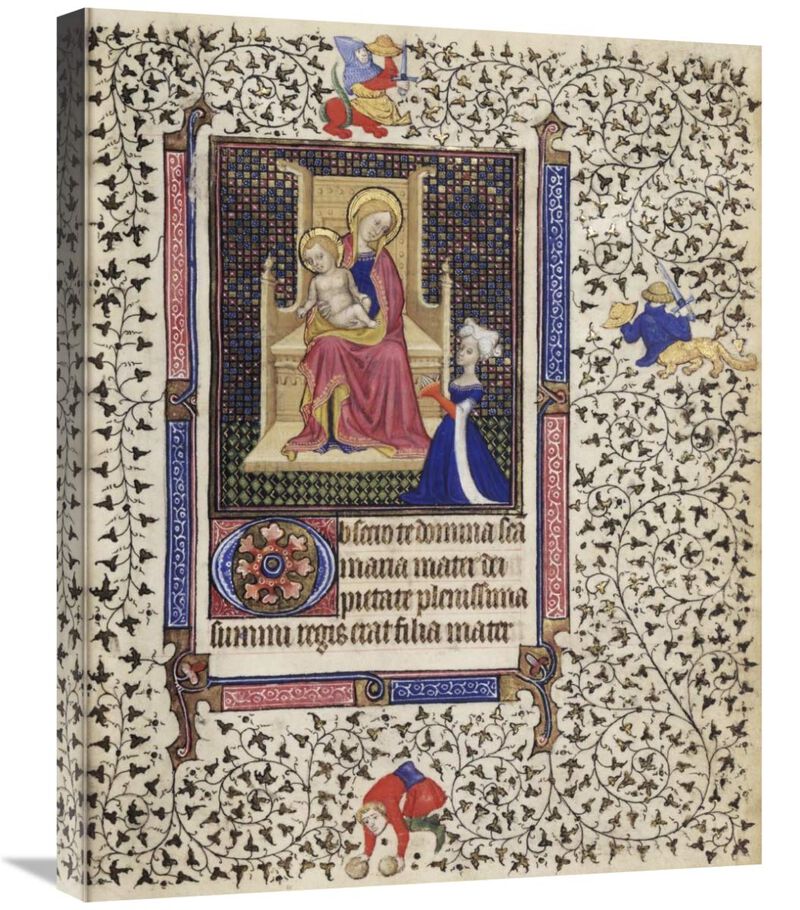 Obsecro te domina sca
maria mater dei
pietate plenissima
summi regis erat filia mater